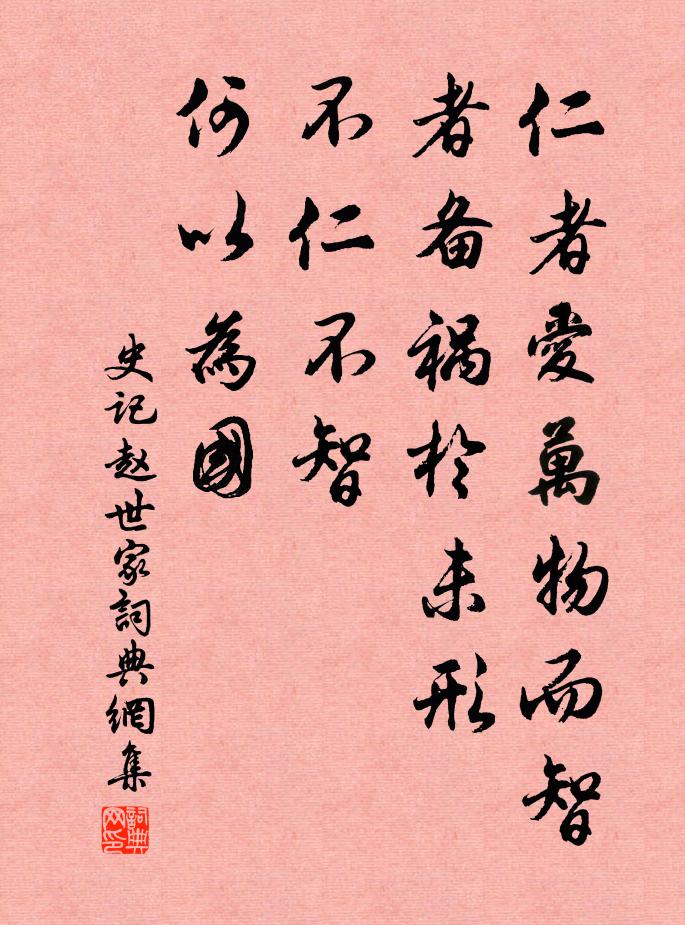 仁者愛萬物而智
者备祸於未形
不仁不智
何以為國
史记赵世家詞典網集
詞典
网印